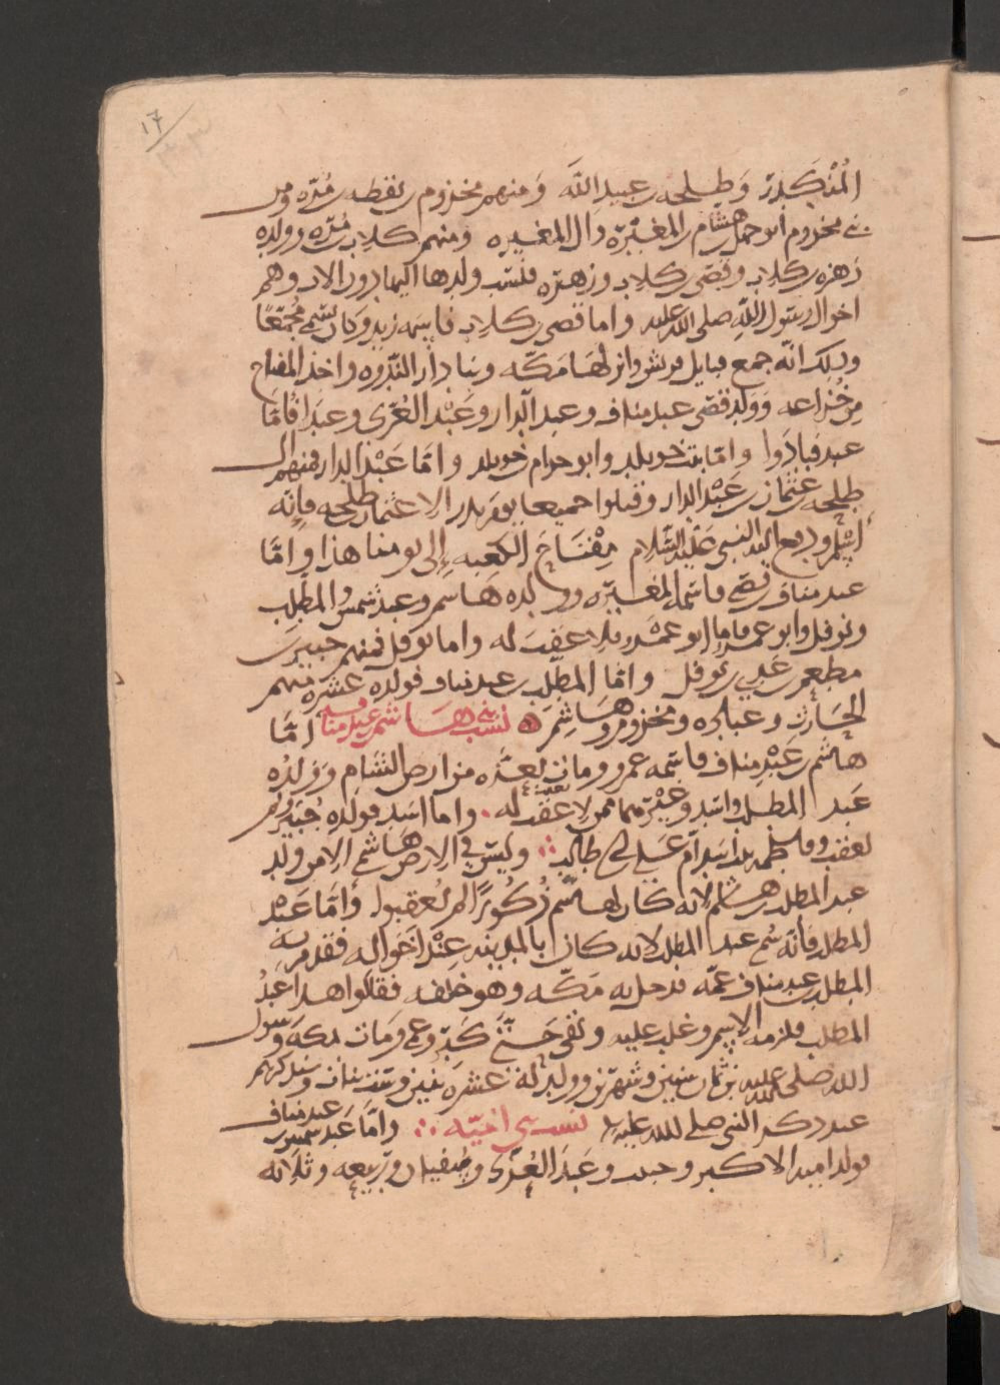 ١٦
المنكدر وطلحه بن عبيد الله ومنهم مخزوم بن يقظه بن مُرّه ومن
بني مخزوم ابو جهل هشام بن المغيرة وال المغيره ومنهم كلاب بن مُرّه وولده
زهره بن كلاب وقصي بن كلاب وزهره فنسب ولدها اليها دون الاب وهم
اخوال رسول الله صلى الله عليه واما قصي بن كلاب فاسمه زيد وكان يسمى مُجمّعًا
وذلك انّه جمع قبايل قريش وانزلها مكّه وبنا دار الندوه واخذ المفتاح
مِن خُزاعه وَوَلد قصَي عبد مناف وعبد الدار وعَبْد العُزّى وعبدًا فامّا
عبد فبادوا وامّا بنت خويلد وابو حزام خويلد وامّا عَبْد الدار فمنهم ال
طلحه بن عثمان بن عَبْد الدار وقتلوا جميعا يوم بدر الا عثمان بن طلحه فانّه
أسْلم ودفع اليه النبي عَليْه السّلام مِفْتاحَ الكعبه إلى يومنا هذا وامّا
عبد مناف بن قصي فاسمه المغيره وولده هاشم وعبد شمس والمطلب
ونوفل وابو عمرو فاما ابو عمْرو فلا عَقِبَ له واما نوفل فمنهم جبير بن
مطعِم بن عَدِي بن نوفل وامّا المطّلِب بن عبد مناف فولده عشره منهم
الحَارث وعباده ومخزومه وهَاشِم نسب بني هاشم بن عبد مناف امّا
هاشم بن عَبْد مناف فاسمه عمرو ومات بغزّه من ارض الشام وَوَلدُه
عَبد المطلب واسَد وغيْرهما ممن لا عقب له واما اسَد فولده حُنَيْن ولم
يعقب وفاطمه بنت اسَد ام عَلي بن ابي طالب وليسَ في الارض هَاشمي الا من ولد
عبد المطلب بن هاشم لانه كان لهاشم ذُكُورًا لم يُعقِبوا وَامّا عَبْد
المطلب فانه سُمي عبد المطلب لانه كان بالمدينه عِنْد اخوَاله فقدم به
المطلب بن عبد مناف عمّه فدخل به مَكّه وهو خلفه فقالوا هذا عَبْدُ
المطلب فلزمه الاسِم وغلب عليه وبقي حَتّي كَبِر وعمي ومَات بمكه وَرسُول
الله صلى الله عليه بن ثمان سنين وشهرين وولد له عشرة بنين وست بنات وسنذكرهم
عند ذكر النبي صلى الله عليه نسب بني اميّه وامّا عَبد شمس بن عبد مناف
فولد اميه الاكبر وحبيب وعَبد العُزّى وسفيان وربيعه وثلاثه